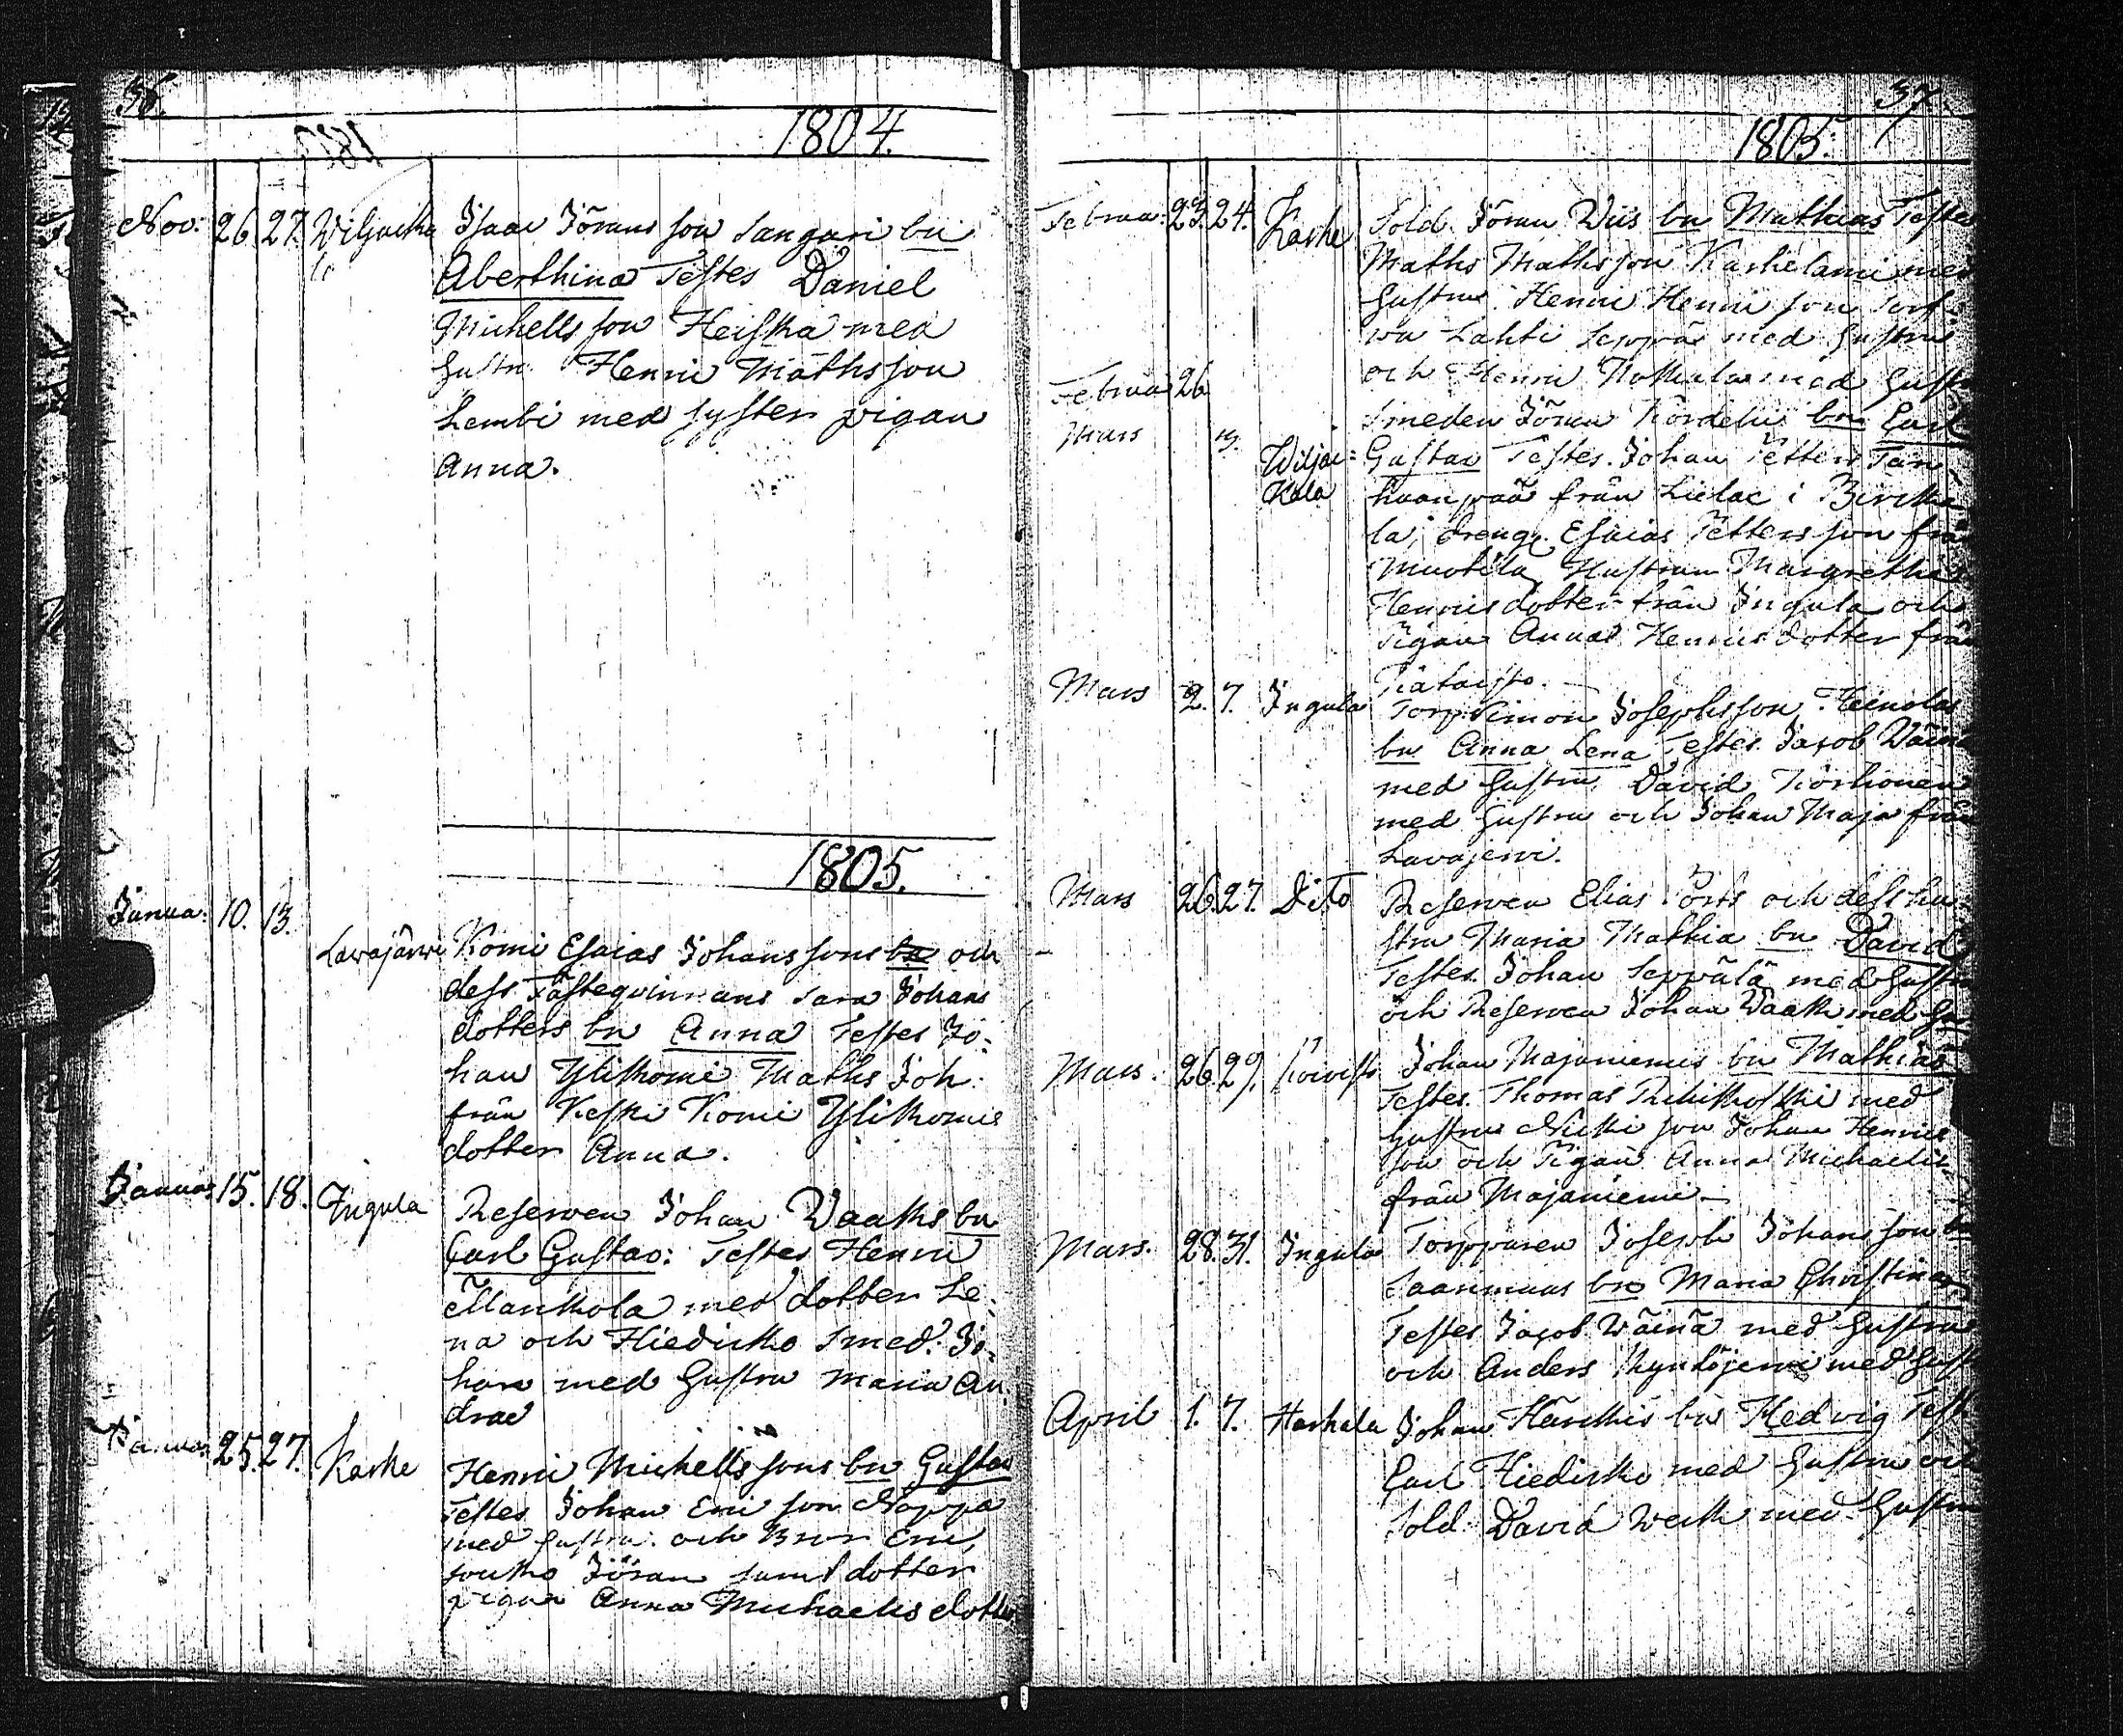 36.
1804.
Nov. 26. 27. Wiljacka Isaac Jörans son Sangari bn
la Aberthina Testes Daniel
Michells son Heiska med
hustr. Henric Mathsson
Lembi med syster pigan
Anna.
1805.
Janua. 10. 13.
Lavajärvi Komi Esaias Johanssons bn och
dess Fästeqvinnans Sara Johans
dotters bn Anna Testes Jo-
han Ylikomi Maths Joh.
från Keski Komi Ylikomis
dotter Anna.
Januar 15. 18. Ingula Reserven Johan Waaks bn
Carl Gustav: Testes Henric
Mankola med dotter Le-
na och Hiedicko Smed. Jo-
han med hustru Maria An
drae
Januar 25. 27. Karhe Henric Michells sons bn Gustav
Testes Johan Eric son Noppa
med hustru och Bror Eric,
Jöran samt dotter
pigan Anna Michaelis dotter
37
1805.
Februa. 23. 24. Karhe Sold. Jöran Wiis bn Mathias Testes
Maths Mathsson Karhelami med
hustru Henric Henric son
Lahti Seppä med hustru
och Henric med hustr
Februa 26 Smeden Jöran Nordelin bn Carl
Mars 3. Wiljac- Gustav Testes. Johan Petters Tan-
kala huanpää från Lielac i Birkka
la, Dreng. Esaias Petters son från
Muotila, Hustrun Margretha
Henricsdotter från Ingula och
Pigan Anna Henricsdotter från
Pataisto.
Mars 2. 7. Ingula Torp. Simon Josephsson Heinolas
bn Anna Lena Testes. Jacob Wäinä
med hustru, David Korhonen
med hustru och Johan Maja från
Lavajervi.
Mars 26. 27. Dito Reserven Elias och dess hu-
stru Maria Mathia bn David
Testes. Johan Seppälä med hustru
och Reserven Johan Waak med hu
Mars. 26. 29. Koivisto Johan Majaniemis bn Mathias
Testes. Thomas Rikikoski med
hustru son Johan Henrics
son och Pigan Anna Michaelis
från Majaniemi.
Mars. 28. 31. Ingula Torpparen Joseph Johansson
Saanmaas bn Maria Christina
Testes Jacob Wäinä med hustru
och Anders Kyntöjervi med hust
April 1. 7. Harhala Johan Händkis bn Hedvig Test
Carl Hiedicko med hustru och
Sold. David Werk med hustru